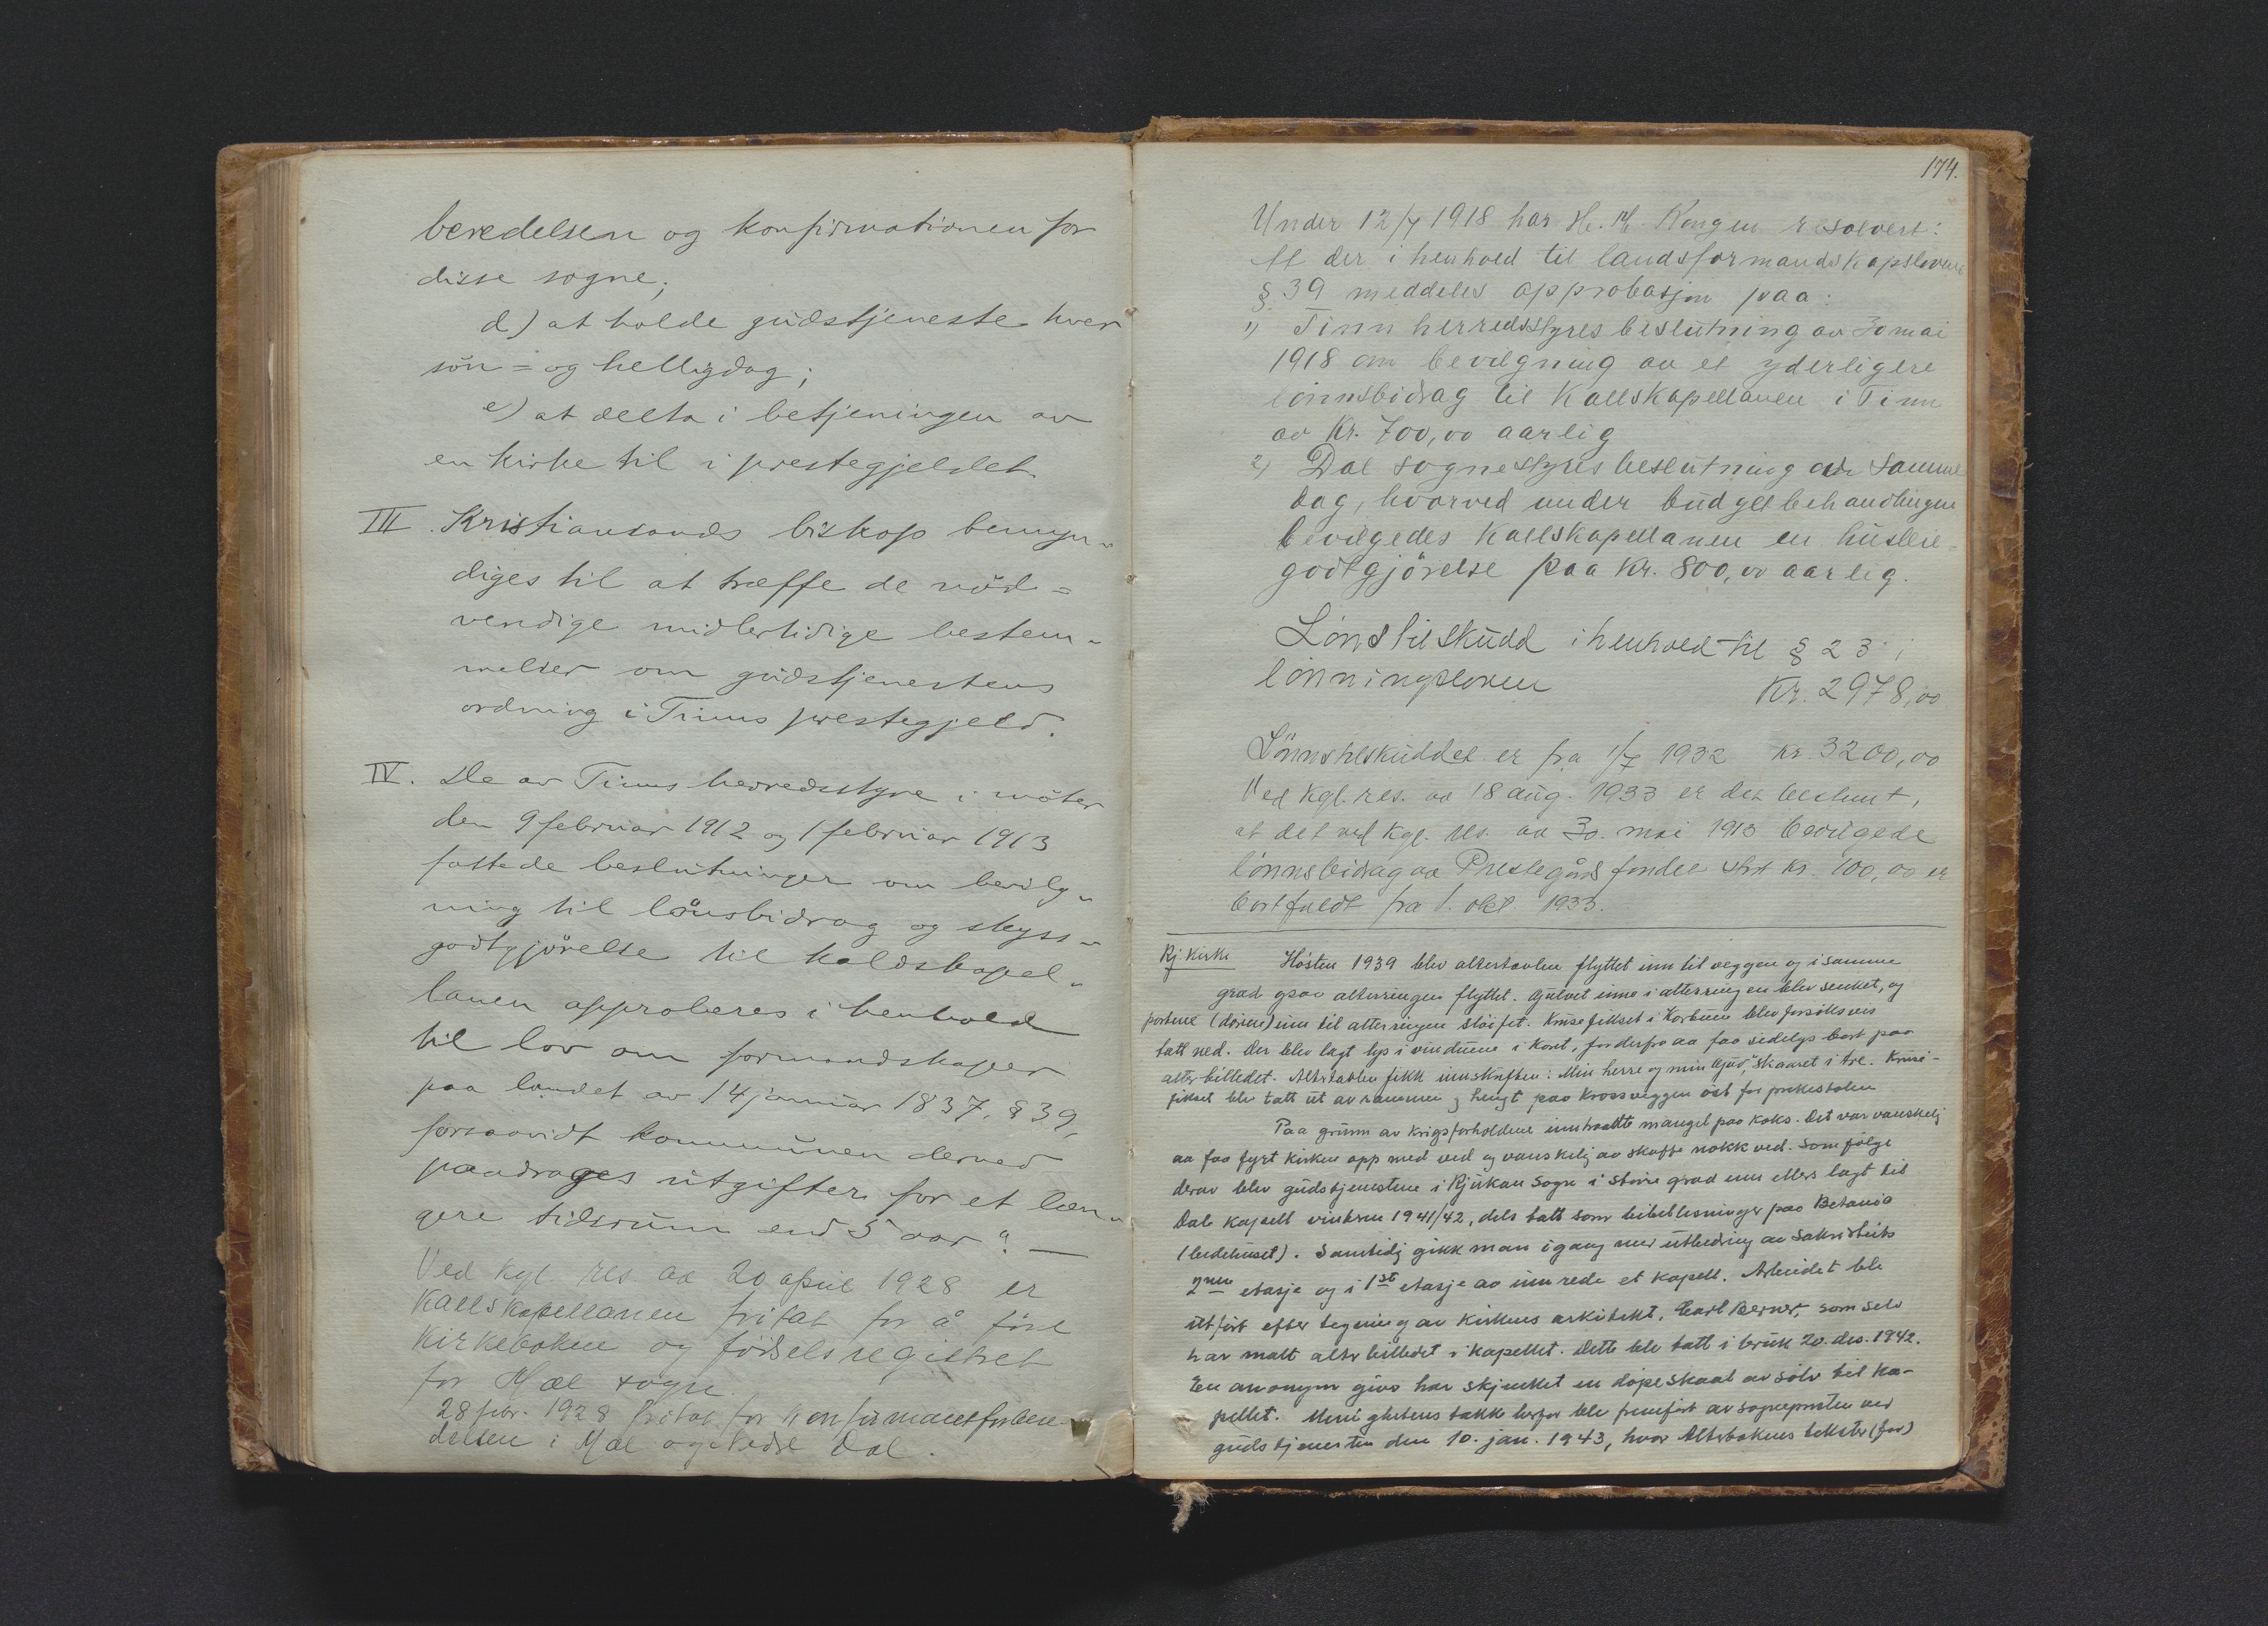 beredelsen og konfirmationen for
disse sogne;
d) at holde gudstjeneste hver
søn= og helligdag;
e) at delta i betjeningen av
en kirke til i prestegjeldet.
III. Kristiansands biskop bemyn„
diges til at træffe de nød=
vendige midlertidige bestem„
melser om gudstjenestens
ordning i Tinns prestegjeld.
IV. De av Tinns herredsstyre i møter
den 9 februar 1912 og 1 februar 1913
fattede beslutninger om bevilg„
ning til lønsbidrag og skyss„
godtgjörelse til kaldskapel„
lanen approberes i henhold
til lov om formandskaper
paa landet av 14 januar 1837, § 39,
forsaavidt kommunen derved
paadrages utgifter for et læn„
gere tidsrum end 5 aar". —
Ved kgl. res av 20 april 1928 er
Kallskapellanen fritat for å føre
Kirkebøkene og fødselsregistret
for Mæl sogn.
28 febr. 1928 fritat for Konfirmantforbere-
delsen i Mæl og Nedre Dal.
174.
Under 12/7 1918 har H. M. Kongen resolvert:
At der i henhold til landsformandskapslovens
§ 39 meddeles approbasjon paa:
1) Tinn herredsstyres beslutning av 30 mai
1918 om bevilgning av et yderligere
lønnsbidrag til Kallskapellanen i Tinn
av Kr. 700,00 aarlig
2) Dal sognestyres beslutning av samme
dag, hvorved under budgetbehandlingen
bevilgedes Kallskapellanen en husleie-
godtgjörelse paa Kr. 800,00 aarlig.
Lønstilskudd i henhold til § 23 i
lønningsloven Kr. 2978,00
Lönnstilskuddet er fra 1/7 1932 kr. 3200,00
Ved kgl. res. av 18 aug. 1933 er det bestemt,
at det ved kgl. res. av 30. mai 1913 bevilgede
lønnsbidrag av Prestegårds fondet stort kr. 100,00 er
bortfaldt fra 1. okt. 1933.
Rj. Kirke Høsten 1939 blev altertavlen flyttet inn til veggen og i samme
grad ogsaa alterringen flyttet. Gulvet inne i alterringen blev senket, og
portene (dørene) inn til alterringen sløifet. Krusefikset i Korbuen blev forsøksvis
tatt ned. Der blev lagt lys i vinduene i Koret, for derfra aa faa sidelys bort paa
alterbilledet. Altertavlen fikk innskriften: "Min herre og min Gud", skaaret i tre. Kruse-
fikset blev tatt ut av rammen og hengt paa Krossveggen øst for prekestolen
Paa grunn av krigsforholdene inntraadte mangel paa koks. Det var vanskelig
aa faa fyrt kirken opp med ved og vanskelig aa skaffe nokk ved. Som følge
derav blev gudstjenestene i Rjukan Sogn i større grad enn ellers lagt til
Dal kapell vinteren 1941/42, dels tatt som bibellesninger paa Betania
(bedehuset). Samtidig gikk man igang med utbedring av Sakristiets
2nen etasje og i 1st etasje aa innrede et kapell. Arbeidet ble
utført efter tegning av kirkens arkitekt, Carl Berner, som selv
har malt alterbilledet i kapellet. Dette ble tatt i bruk 20. des. 1942.
En anonym giver har skjenket en døpeskaal av sølv til ka-
pellet. Menighetens takk herfor ble fremført av sogneprsten ved
gudstjenesten den 10. jan. 1943, hvor Alterbokens tekster (for)